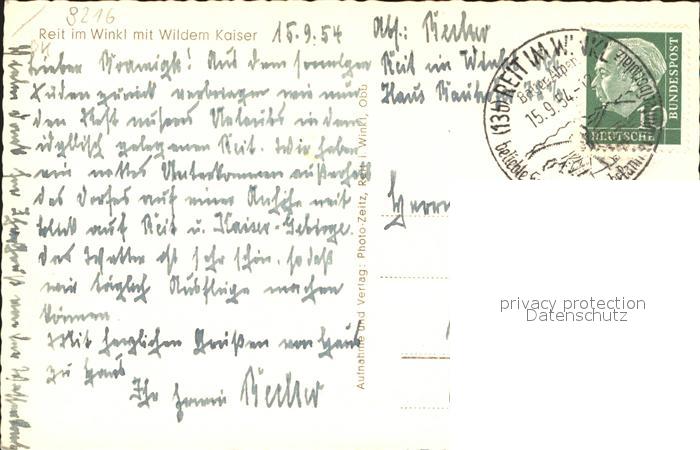 8216
Reit im Winkl mit Wildem Kaiser
15.9.54
Abs: Becker
Reit im Winkl
Haus
Lieber Aus dem sonnigen
Süden zurück verbringen wir nun
den Rest unseres Urlaubs in dem
idyllisch gelegenen Reit. Wir haben
ein nettes Unterkommen außerhalb
des Dorfes auf einer Anhöhe mit
Blick auf Reit u. Kaiser-Gebirge.
Das Wetter ist sehr schön, so daß
wir täglich Ausflüge machen
können.
Mit herzlichen Grüßen von Haus
zu Haus
Ihr Becker
Herrn
Aufnahme und Verlag: Photo-Zeitz, Reit i. Winkl, Obb.
(13b) REIT IM WINKL
Bayer. Alpen
15.9.54
beliebte
DEUTSCHE
BUNDESPOST
10
privacy protection
Datenschutz